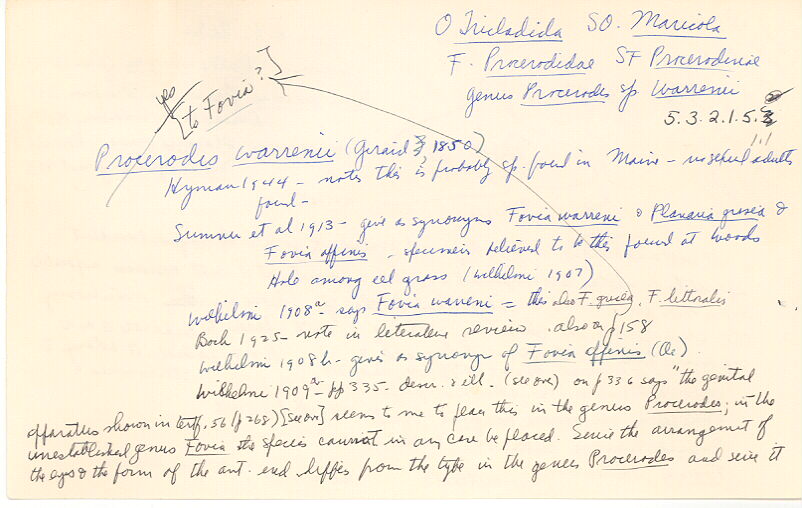 O Tricladida SO. Maricola
F. Procerodidae SF Procerodinae
genus Procerodes sp Warrenii
5.3.2.1.5.
1.1
yes
[to Fovia?]
Procerodes warrenii (Girard 1850)
Hyman 1944 - notes this is probably sp. found in Maine - no sexual adults
found -
Sumner et al 1913 - give as synonyms Fovia warreni & Planaria grisea &
Fovia affinis - specimens believed to be this found at Woods
Hole among eel grass (Wilhelmi 1907)
Wilhelmi 1908a - says Fovia warreni = this also F. F. littoralis
Bock 1925 - note in literature review. also on p 158
Wilhelmi 1908b - gives as synonym of Fovia affinis (Oe)
Wilhelmi 1909a - pp 335. descr. & ill. (see over) on p 336 says "the genital
apparatus shown in textf. 56 (p 268) [see over] seems to me to place this in the genus Procerodes; in the
unestablished genus Fovia the species cannot in any case be placed. Since the arrangement of
the eyes & the form of the ant. end differs from the type in the genus Procerodes and since it